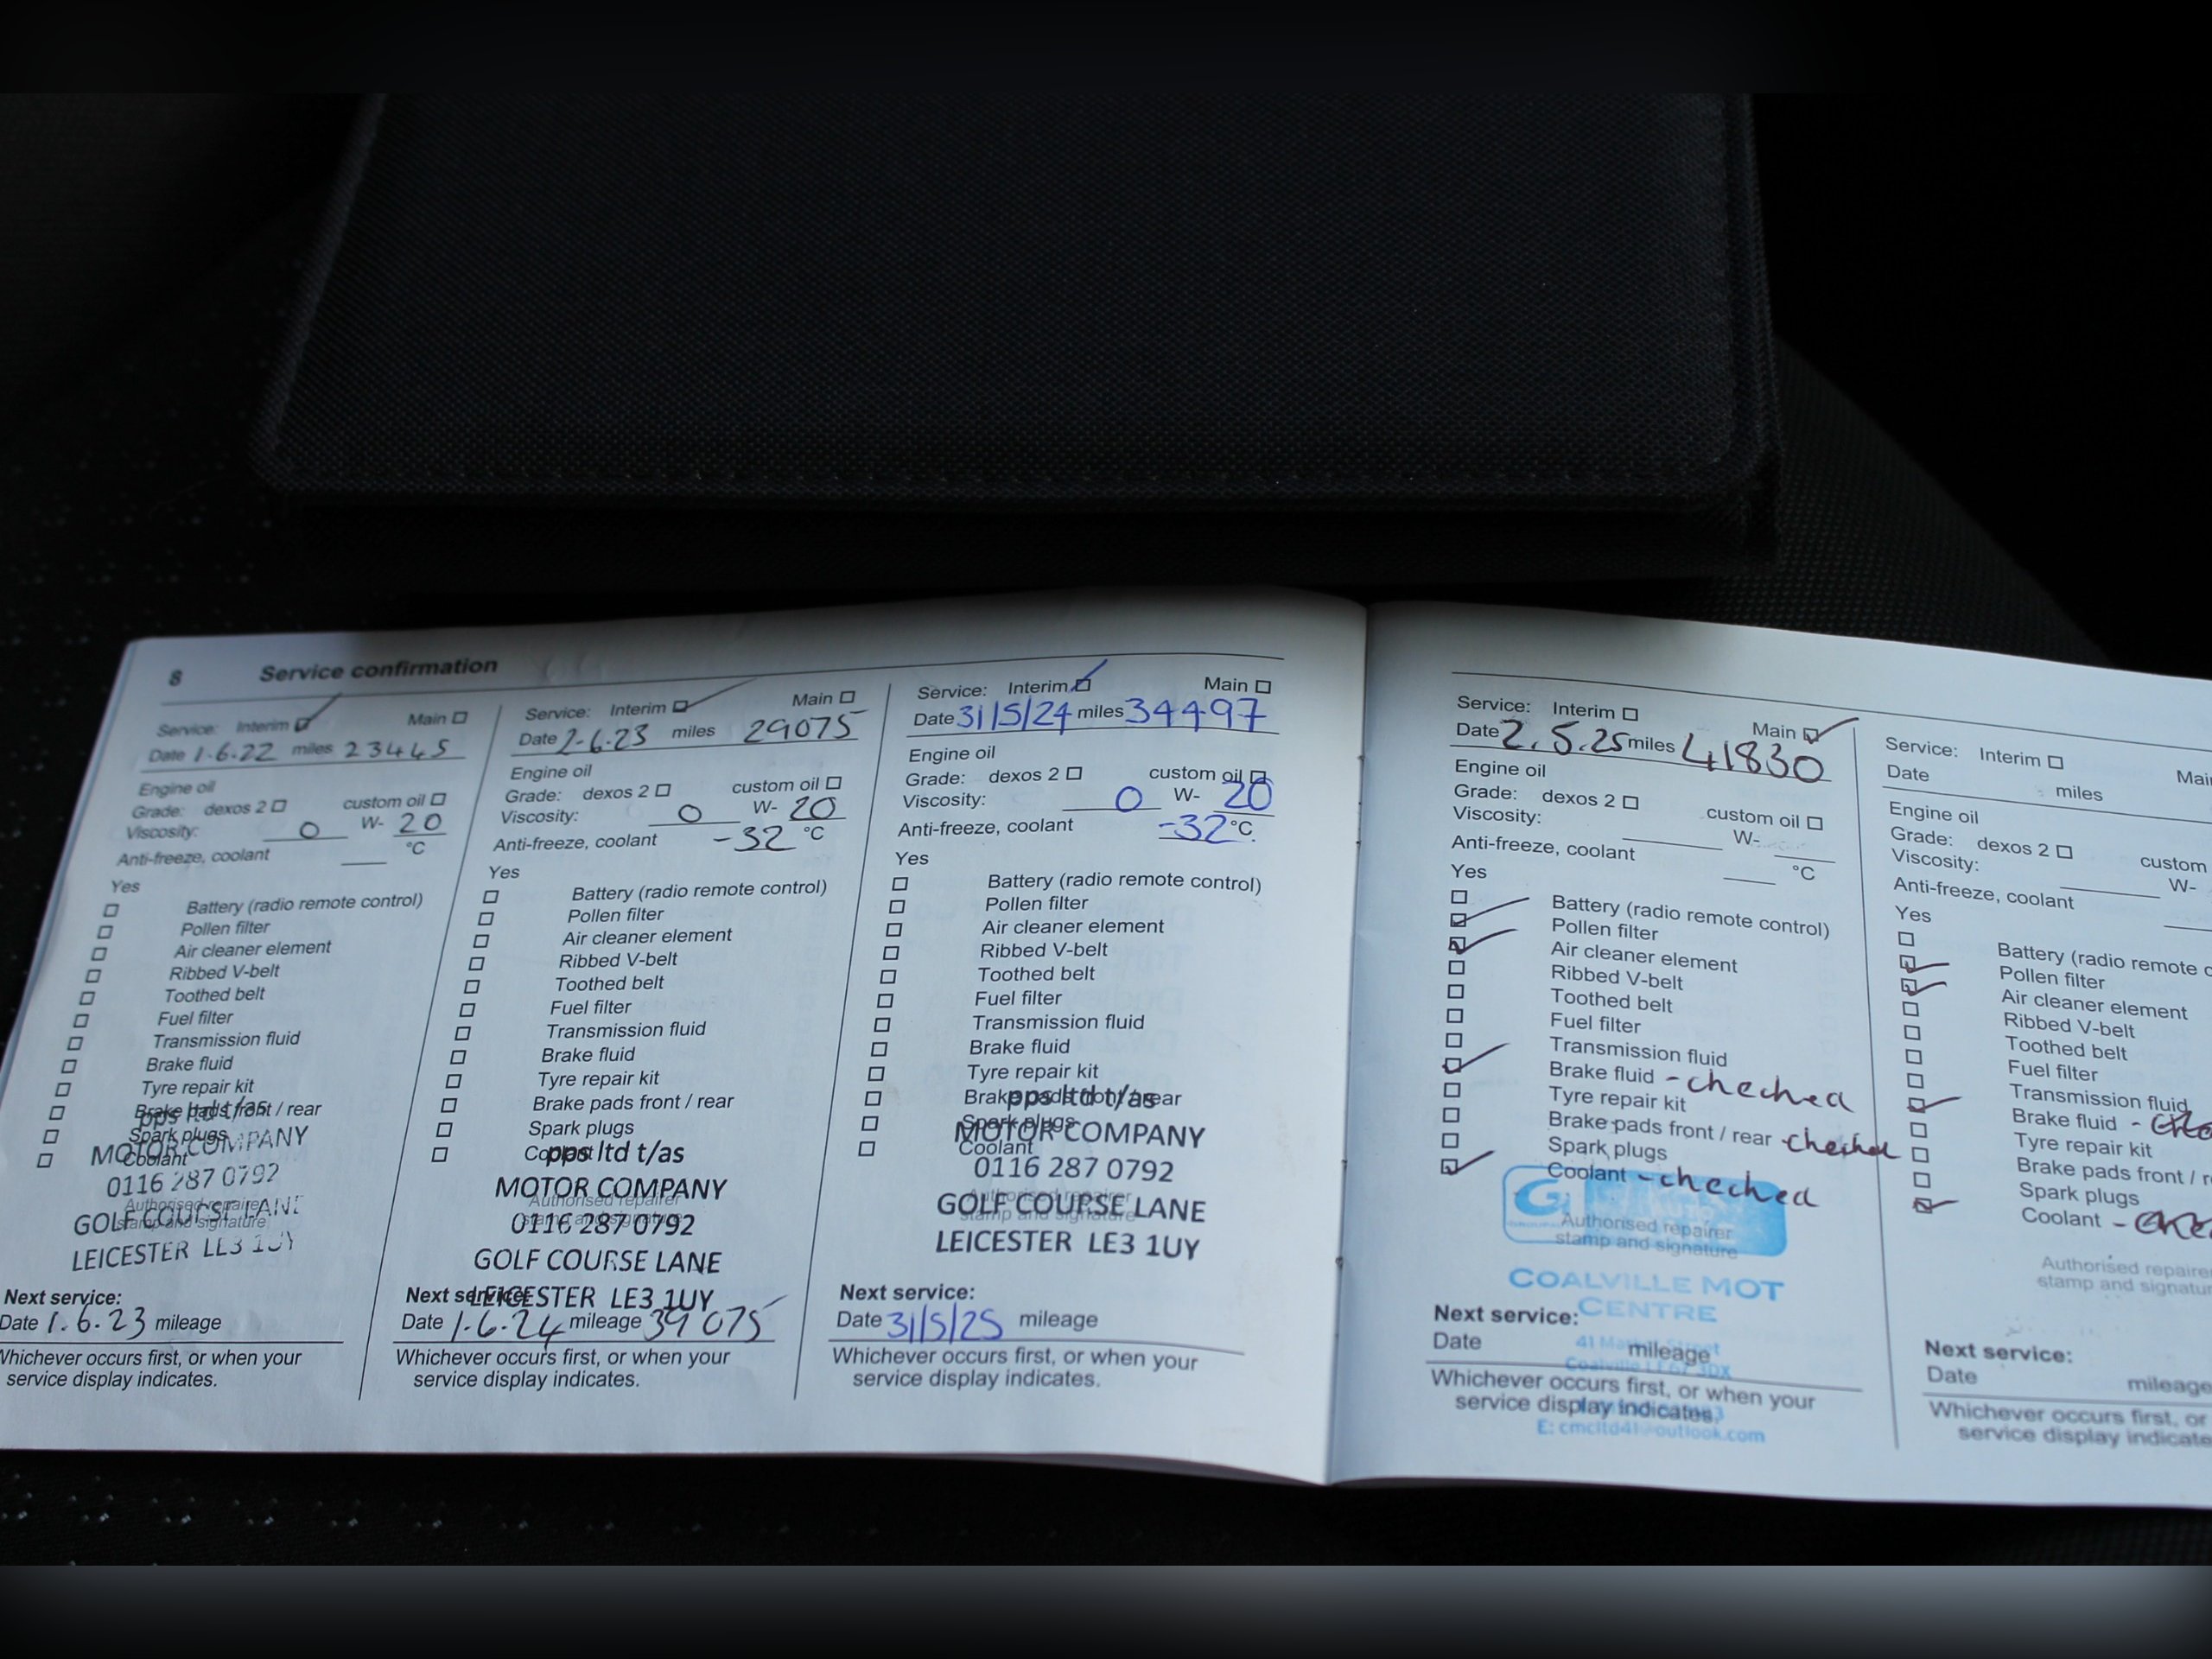 8 Service confirmation
Service: Interim Main
Date 1.6.22 miles 23445
Engine oil
Grade: dexos 2 custom oil
Viscosity: 0 W- 20
Anti-freeze, coolant °C
Yes
Battery (radio remote control)
Pollen filter
Air cleaner element
Ribbed V-belt
Toothed belt
Fuel filter
Transmission fluid
Brake fluid
Tyre repair kit
Brake pads front / rear
pps ltd t/as
Spark plugs
MOTOR COMPANY
Coolant
0116 287 0792
Authorised repairer
GOLF COURSE LANE
stamp and signature
LEICESTER LE3 1UY
Next service:
Date 1.6.23 mileage
Whichever occurs first, or when your
service display indicates.
Service: Interim Main
Date 2-6.23 miles 29075
Engine oil
Grade: dexos 2 custom oil
Viscosity: 0 W- 20
Anti-freeze, coolant -32 °C
Yes
Battery (radio remote control)
Pollen filter
Air cleaner element
Ribbed V-belt
Toothed belt
Fuel filter
Transmission fluid
Brake fluid
Tyre repair kit
Brake pads front / rear
Spark plugs
Coolant
pps ltd t/as
MOTOR COMPANY
Authorised repairer
0116 287 0792
stamp and signature
GOLF COURSE LANE
LEICESTER LE3 1UY
Next service:
Date 1.6.24 mileage 39075
Whichever occurs first, or when your
service display indicates.
Service: Interim Main
Date 31/5/24 miles 34497
Engine oil
Grade: dexos 2 custom oil
Viscosity: 0 W- 20
Anti-freeze, coolant -32 °C
Yes
Battery (radio remote control)
Pollen filter
Air cleaner element
Ribbed V-belt
Toothed belt
Fuel filter
Transmission fluid
Brake fluid
Tyre repair kit
Brake pads front / rear
pps ltd t/as
Spark plugs
MOTOR COMPANY
Coolant
0116 287 0792
Authorised repairer
GOLF COURSE LANE
stamp and signature
LEICESTER LE3 1UY
Next service:
Date 31/5/25 mileage
Whichever occurs first, or when your
service display indicates.
Service: Interim Main
Date 2.5.25 miles 41830
Engine oil
Grade: dexos 2 custom oil
Viscosity: W-
Anti-freeze, coolant °C
Yes
Battery (radio remote control)
Pollen filter
Air cleaner element
Ribbed V-belt
Toothed belt
Fuel filter
Transmission fluid
Brake fluid - checked
Tyre repair kit
Brake pads front / rear - checked
Spark plugs
Coolant - checked
Authorised repairer
stamp and signature
COALVILLE MOT
CENTRE
Next service:
Date mileage
Whichever occurs first, or when your
service display indicates.
E: cmcltd41@outlook.com
Service: Interim
Date miles
Engine oil
Grade: dexos 2 custom
Viscosity: W-
Anti-freeze, coolant
Yes
Battery (radio remote
Pollen filter
Air cleaner element
Ribbed V-belt
Toothed belt
Fuel filter
Transmission fluid
Brake fluid -
Tyre repair kit
Brake pads front /
Spark plugs
Coolant -
Authorised
stamp and
Next service:
Date mileage
Whichever occurs first, or
service display